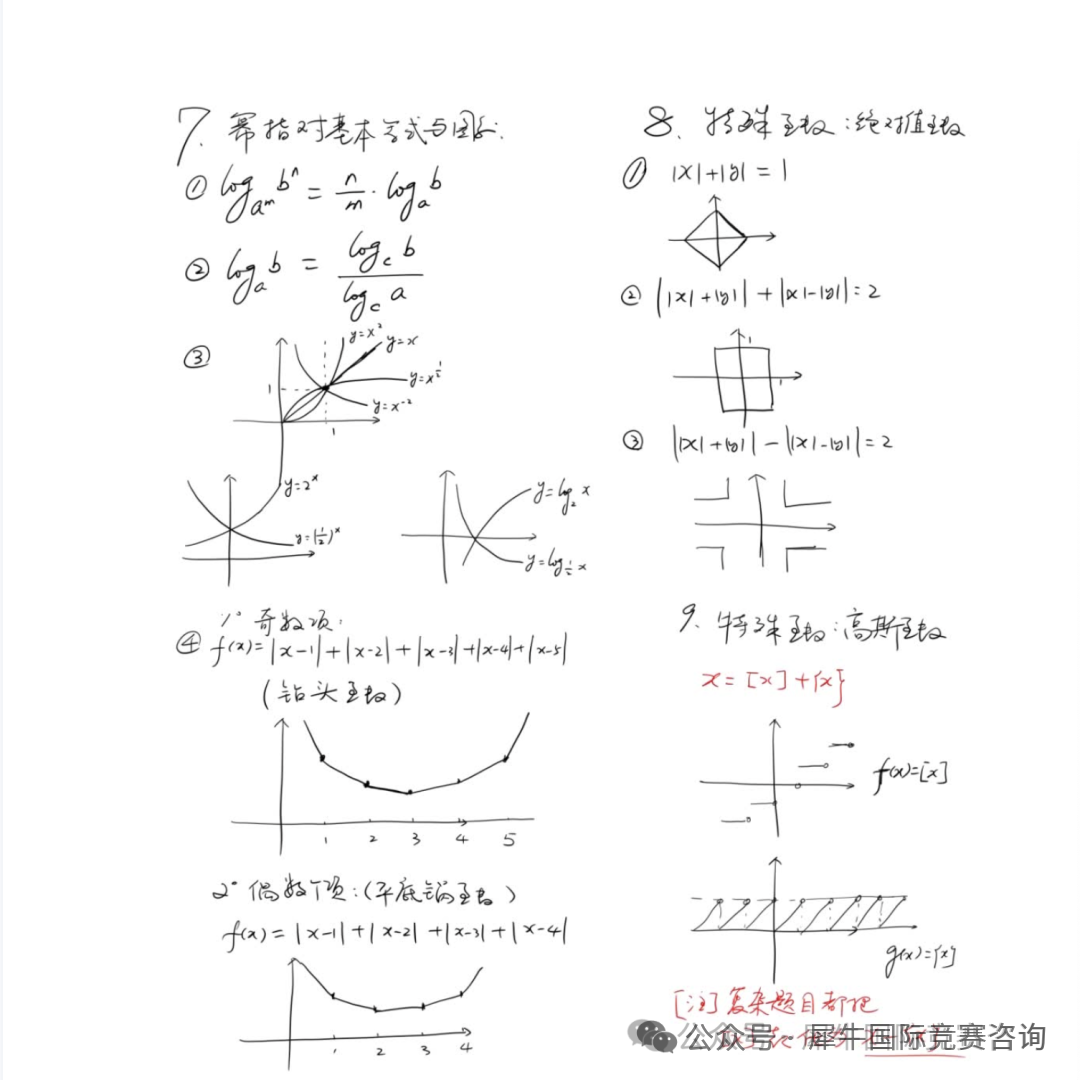 7. 幂指对基本公式与图形.
① log_{a^m} b^n = n/m · log_a b
② log_a b = log_c b / log_c a
③
y=x²
y=x
y=x^{1/2}
y=x^{-2}
1
1
y=2^x
y=(1/2)^x
y=log_2 x
y=log_{1/2} x
1° 奇数项:
④ f(x)=|x-1|+|x-2|+|x-3|+|x-4|+|x-5|
(钻头函数)
1 2 3 4 5
2° 偶数个项:(平底锅函数)
f(x)=|x-1|+|x-2|+|x-3|+|x-4|
1 2 3 4
8. 特殊函数:绝对值函数
① |x|+|y|=1
② ||x|+|y||+||x|-|y||=2
1
1
③ ||x|+|y||-||x|-|y||=2
9. 特殊函数:高斯函数
x=[x]+{x}
f(x)=[x]
g(x)={x}
[注] 复杂题目都把
公众号·犀牛国际竞赛咨询